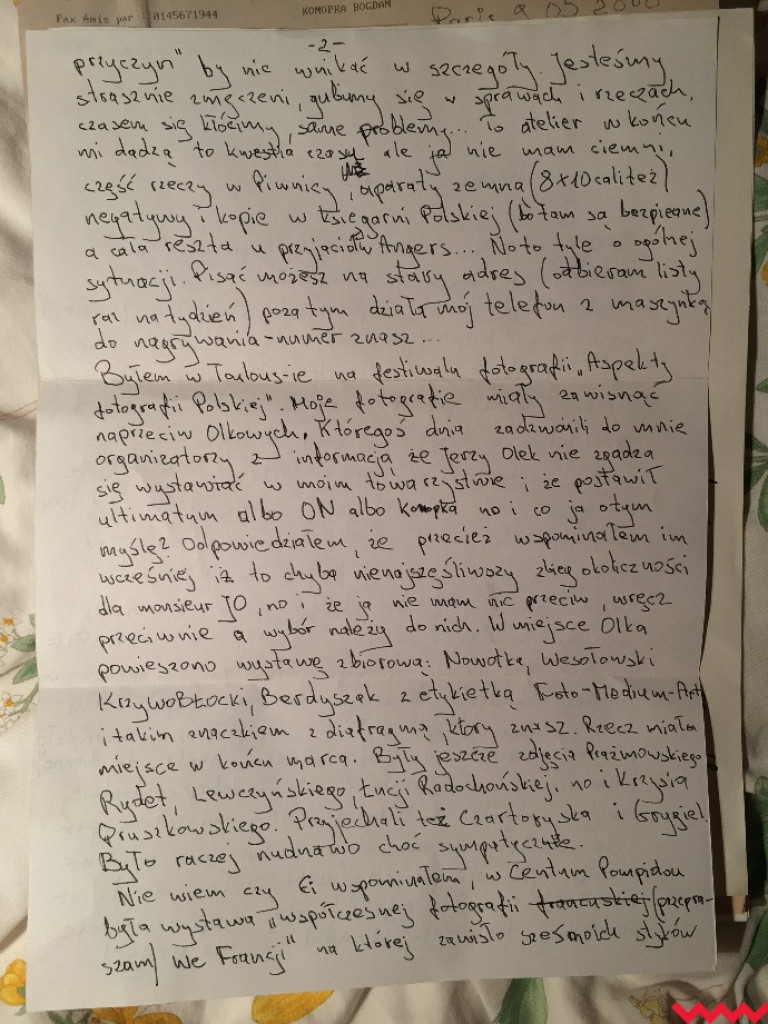 Fax émis par : 0145671944
KONOPKA BOGDAN
Paris 2000
-2-
przyczyn" by nie wnikać w szczegóły. Jesteśmy
strasznie zmęczeni, gubimy się w sprawach i rzeczach,
czasem się kłócimy, same problemy... To atelier w końcu
mi dadzą to kwestia czasu ale ja nie mam ciemni,
część rzeczy w Piwnicy, aparaty ze mną (8x10 cali też)
negatywy i kopie w Księgarni Polskiej (bo tam są bezpieczne)
a cała reszta u przyjaciół w Angers... No to tyle o ogólnej
sytuacji. Pisać możesz na stary adres (odbieram listy
raz na tydzień) poza tym działa mój telefon z maszynką
do nagrywania - numer znasz...
Byłem w Toulous-ie na festiwalu fotografii „Aspekty
fotografii Polskiej". Moje fotografie miały zawisnąć
naprzeciw Olkowych. Któregoś dnia zadzwonili do mnie
organizatorzy z informacją że Jerzy Olek nie zgadza
się wystawiać w moim towarzystwie i że postawił
ultimatum albo ON albo Konopka no i co ja o tym
myślę? Odpowiedziałem, że przecież wspominałem im
wcześniej iż to chyba nienajszęśliwszy zbieg okoliczności
dla monsieur JO, no i że ja nie mam nic przeciw, wręcz
przeciwnie a wybór należy do nich. W miejsce Olka
powieszono wystawę zbiorową: Nowotka, Wesołowski
KrzywoBŁocki, Berdyszak z etykietką Foto-Medium-Art
i takim znaczkiem z diafragmą, który znasz. Rzecz miała
miejsce w końcu marca. Były jeszcze zdjęcia Prażmowskiego
Rydet, Lewczyńskiego, Łucji Radochońskiej, no i Krzysia
Pruszkowskiego. Przyjechali też Czartoryska i Grygiel.
Było raczej nudnawo choć sympatycznie.
Nie wiem czy Ci wspominałem, w Centum Pompidou
była wystawa „współczesnej fotografii francuskiej (przepra-
szam) we Francji" na której zawisło sześć moich styków